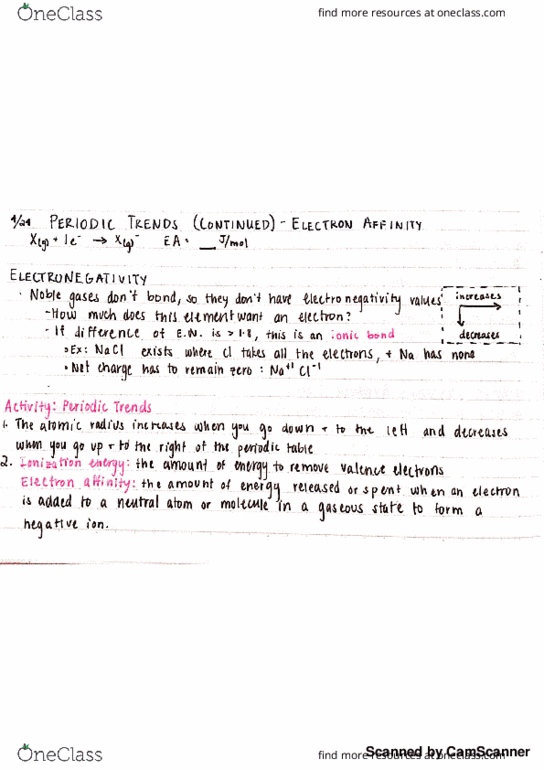 OneClass
find more resources at oneclass.com
9/24 PERIODIC TRENDS (CONTINUED) - ELECTRON AFFINITY
X(g) + 1e⁻ → X(g)⁻ EA = __ J/mol
ELECTRONEGATIVITY
· Noble gases don't bond, so they don't have electronegativity values
increases
- How much does this element want an electron?
- If difference of E.N. is > 1.8, this is an ionic bond
decreases
• Ex: NaCl exists where Cl takes all the electrons, + Na has none
• Net charge has to remain zero : Na⁺¹ Cl⁻¹
Activity: Periodic Trends
1. The atomic radius increases when you go down + to the left and decreases
when you go up + to the right of the periodic table
2. Ionization energy: the amount of energy to remove valence electrons
Electron affinity: the amount of energy released or spent when an electron
is added to a neutral atom or molecule in a gaseous state to form a
negative ion.
OneClass
find more resources at oneclass.com
Scanned by CamScanner